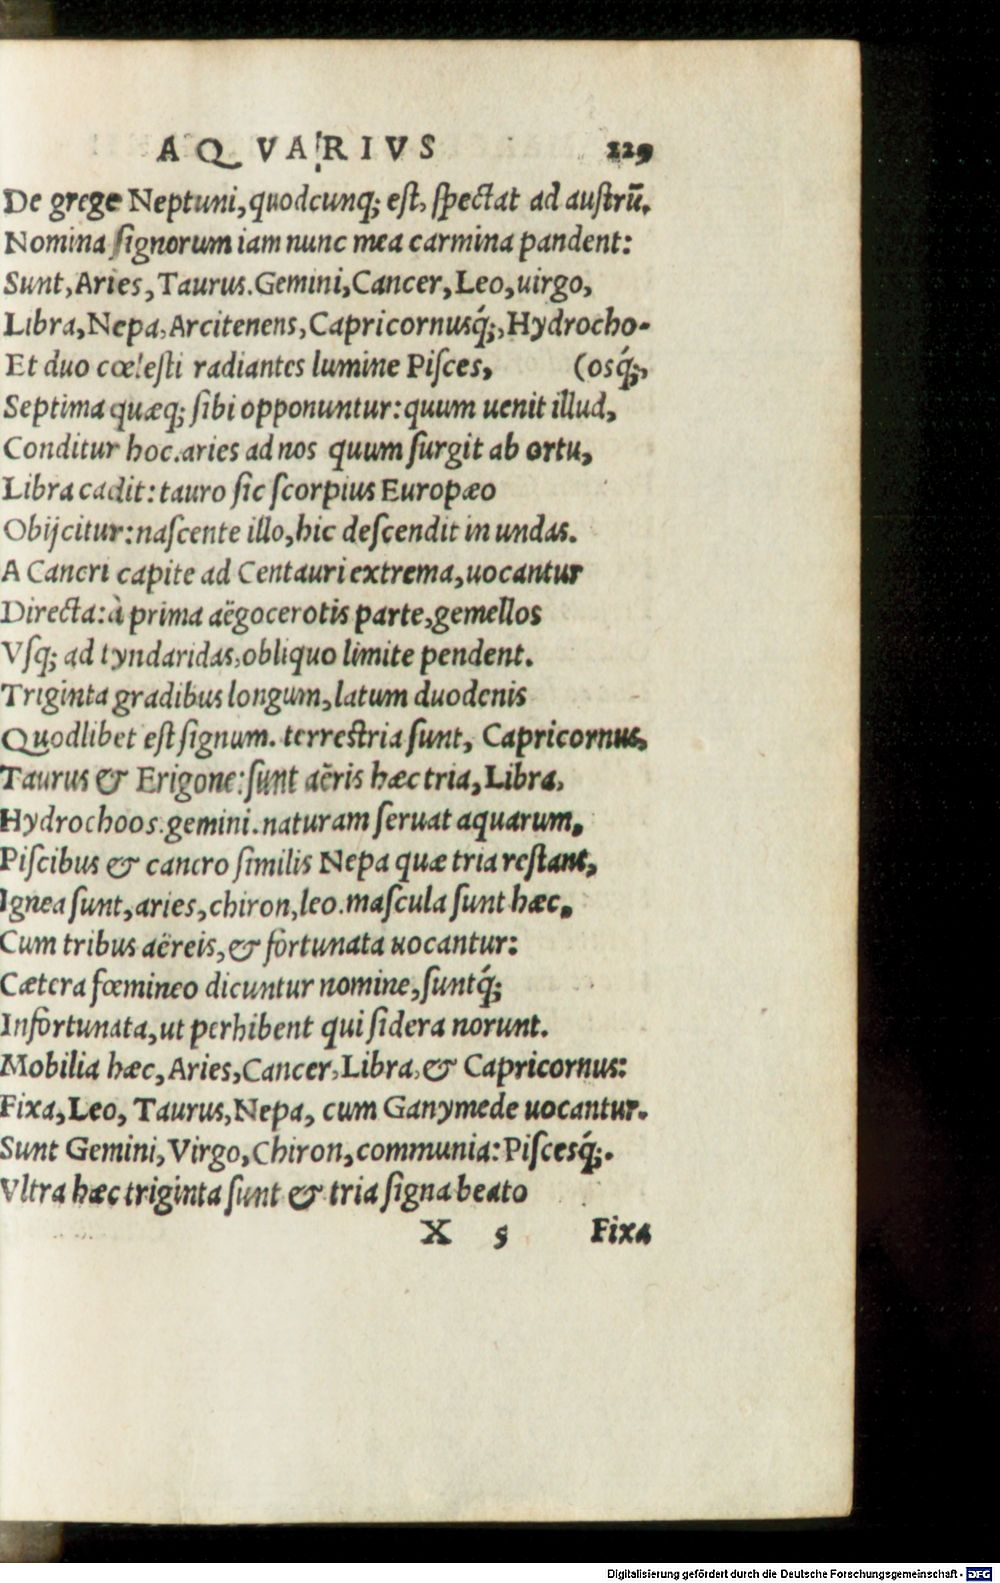 AQVARIVS 229
De grege Neptuni, quodcunq; est, spectat ad austrū.
Nomina signorum iam nunc mea carmina pandent:
Sunt, Aries, Taurus. Gemini, Cancer, Leo, uirgo,
Libra, Nepa, Arcitenens, Capricornusq́;, Hydrocho-
Et duo cœlesti radiantes lumine Pisces, (osq́;,
Septima quæq; sibi opponuntur: quum uenit illud,
Conditur hoc. aries ad nos quum surgit ab ortu,
Libra cadit: tauro sic scorpius Europæo
Obijcitur: nascente illo, hic descendit in undas.
A Cancri capite ad Centauri extrema, uocantur
Directa: à prima aëgocerotis parte, gemellos
Vsq; ad tyndaridas, obliquo limite pendent.
Triginta gradibus longum, latum duodenis
Quodlibet est signum. terrestria sunt, Capricornus,
Taurus & Erigone: sunt aëris hæc tria, Libra,
Hydrochoos. gemini. naturam seruat aquarum,
Piscibus & cancro similis Nepa quæ tria restant,
Ignea sunt, aries, chiron, leo. mascula sunt hæc,
Cum tribus aëreis, & fortunata uocantur:
Cætera fœmineo dicuntur nomine, suntq́;
Infortunata, ut perhibent qui sidera norunt.
Mobilia hæc, Aries, Cancer, Libra, & Capricornus:
Fixa, Leo, Taurus, Nepa, cum Ganymede uocantur.
Sunt Gemini, Virgo, Chiron, communia: Piscesq́;.
Vltra hæc triginta sunt & tria signa beato
X 5 Fixa
Digitalisierung gefördert durch die Deutsche Forschungsgemeinschaft - DFG